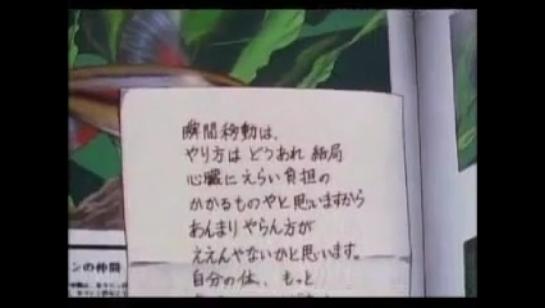 瞬間移動は、
やり方は どうあれ 結局
心臓にえらい負担の
かかるものやと思いますから
あんまりやらん方が
ええんやないかと思います。
自分の体、もっと
ンの仲間